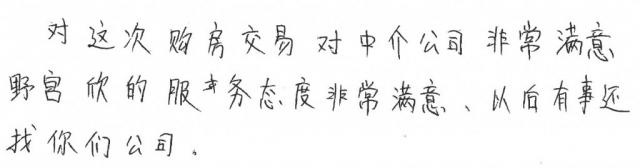 对这次购房交易对中介公司非常满意
野宫欣的服务态度非常满意、以后有事还
找你们公司。